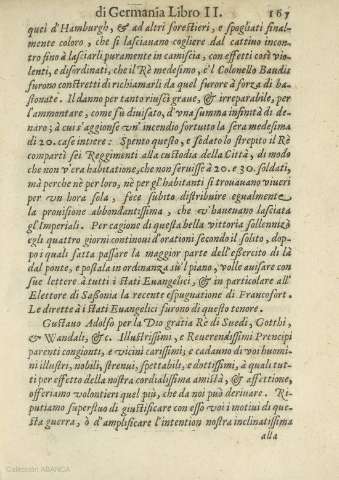 di Germania Libro II. 165
quei d'Hamburgh, & ad altri forestieri, e spogliati final-
mente coloro, che si lasciauano cogliere dal cattiuo incon-
tro fino à lasciarli puramente in camiscia, con effetti così vio-
lenti, e disordinati, che il Rè medesimo, e'l Colonello Baudis
furono constretti di richiamarli da quel furore à forza di ba-
stonate. Il danno per tanto riuscì graue, & irreparabile, per
l'ammontare, come fù diuisato, d'vna summa infinità di de-
naro; à cui s'aggionse vn'incendio fortuito la sera medesima
di 20. case intiere: Spento questo, e sedato lo strepito il Rè
compartì sei Reggimenti alla custodia della Città, di modo
che non v'era habitatione, che non seruisse à 20. e 30. soldati,
mà perche nè per loro, nè per gl'habitanti si trouauano viueri
per vn hora sola, fece subito distribuire egualmente
la prouisione abbondantissima, che v'haueuano lasciata
gl'Imperiali. Per cagione di questa bella vittoria sollennizò
egli quattro giorni continoui d'orationi secondo il solito, dop-
po i quali fatta passare la maggior parte dell'essercito di là
dal ponte, e postala in ordinanza sù'l piano, volle auisare con
sue lettere à tutti i stati Euangelici, & in particolare all'
Elettore di Sassonia la recente espugnatione di Francofort.
Le dirette à i stati Euangelici furono di questo tenore.
Gustauo Adolfo per la Dio gratia Rè di Suedi, Gotthi,
& Wandali, &c. Illustrissimi, e Reuerendissimi Principi
parenti congionti, e vicini carissimi; e cadauno di voi huomi-
ni illustri, nobili, strenui, spettabili, e dottissimi, à quali tut-
ti per effetto della nostra cordialissima amistà, & affettione,
offeriamo volontieri quel più, che da noi può deriuare. Ri-
putiamo superfluo di giustificare con esso voi i motiui di que-
sta guerra, ò d'amplificare l'intention nostra inclinatissima
alla
Colección ABANCA